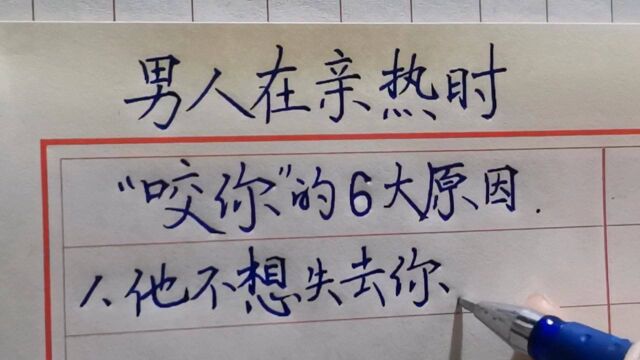 男人在亲热时
“咬你”的6大原因.
1、他不想失去你